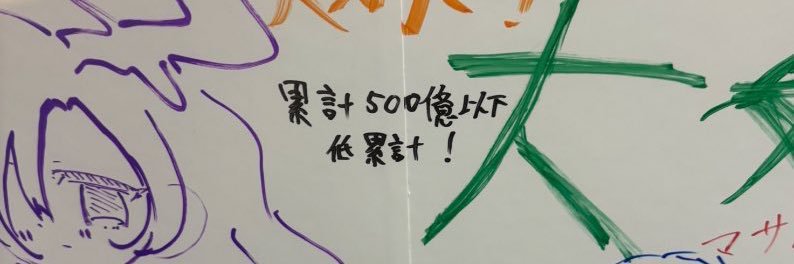 累計500億以下
低累計！
大
マサ